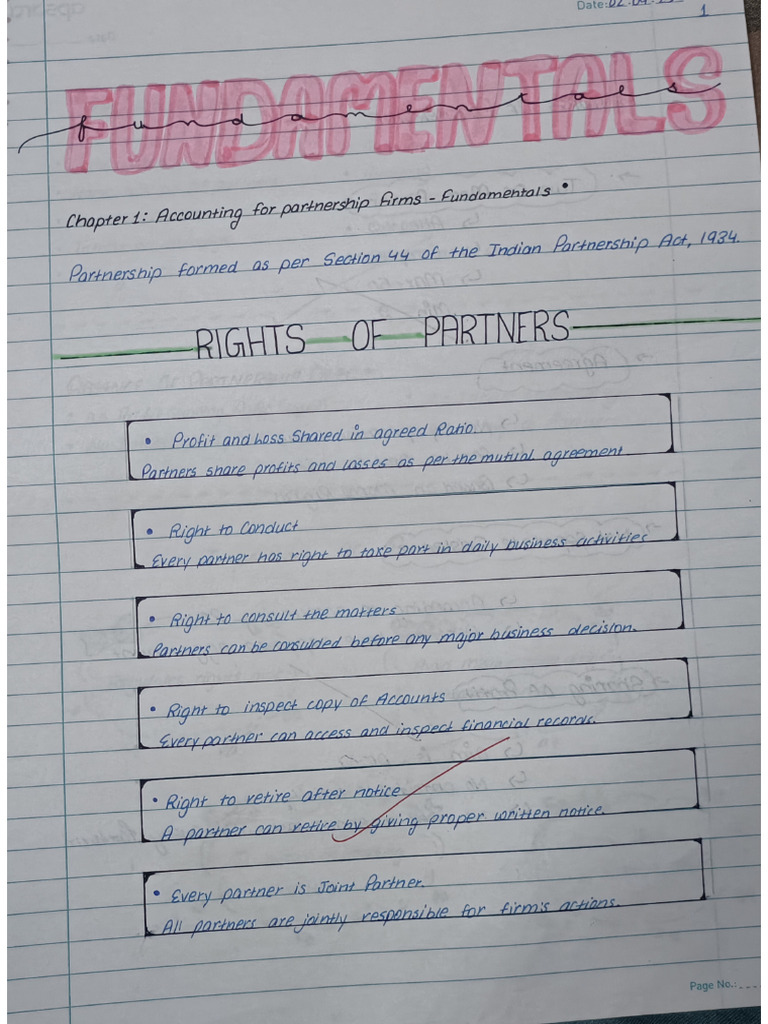 Date: 02.04.
1
FUNDAMENTALS
fundamentals
Chapter 1: Accounting for partnership firms - Fundamentals •
Partnership formed as per Section 44 of the Indian Partnership Act, 1934.
RIGHTS OF PARTNERS
• Profit and Loss Shared in agreed Ratio.
Partners share profits and losses as per the mutual agreement
• Right to Conduct
Every partner has right to take part in daily business activities
• Right to consult the matters
Partners can be consulded before any major business decision.
• Right to inspect copy of Accounts
Every partner can access and inspect financial records.
• Right to retire after notice
A partner can retire by giving proper written notice.
• Every partner is Joint Partner.
All partners are jointly responsible for firm's actions.
Page No.: